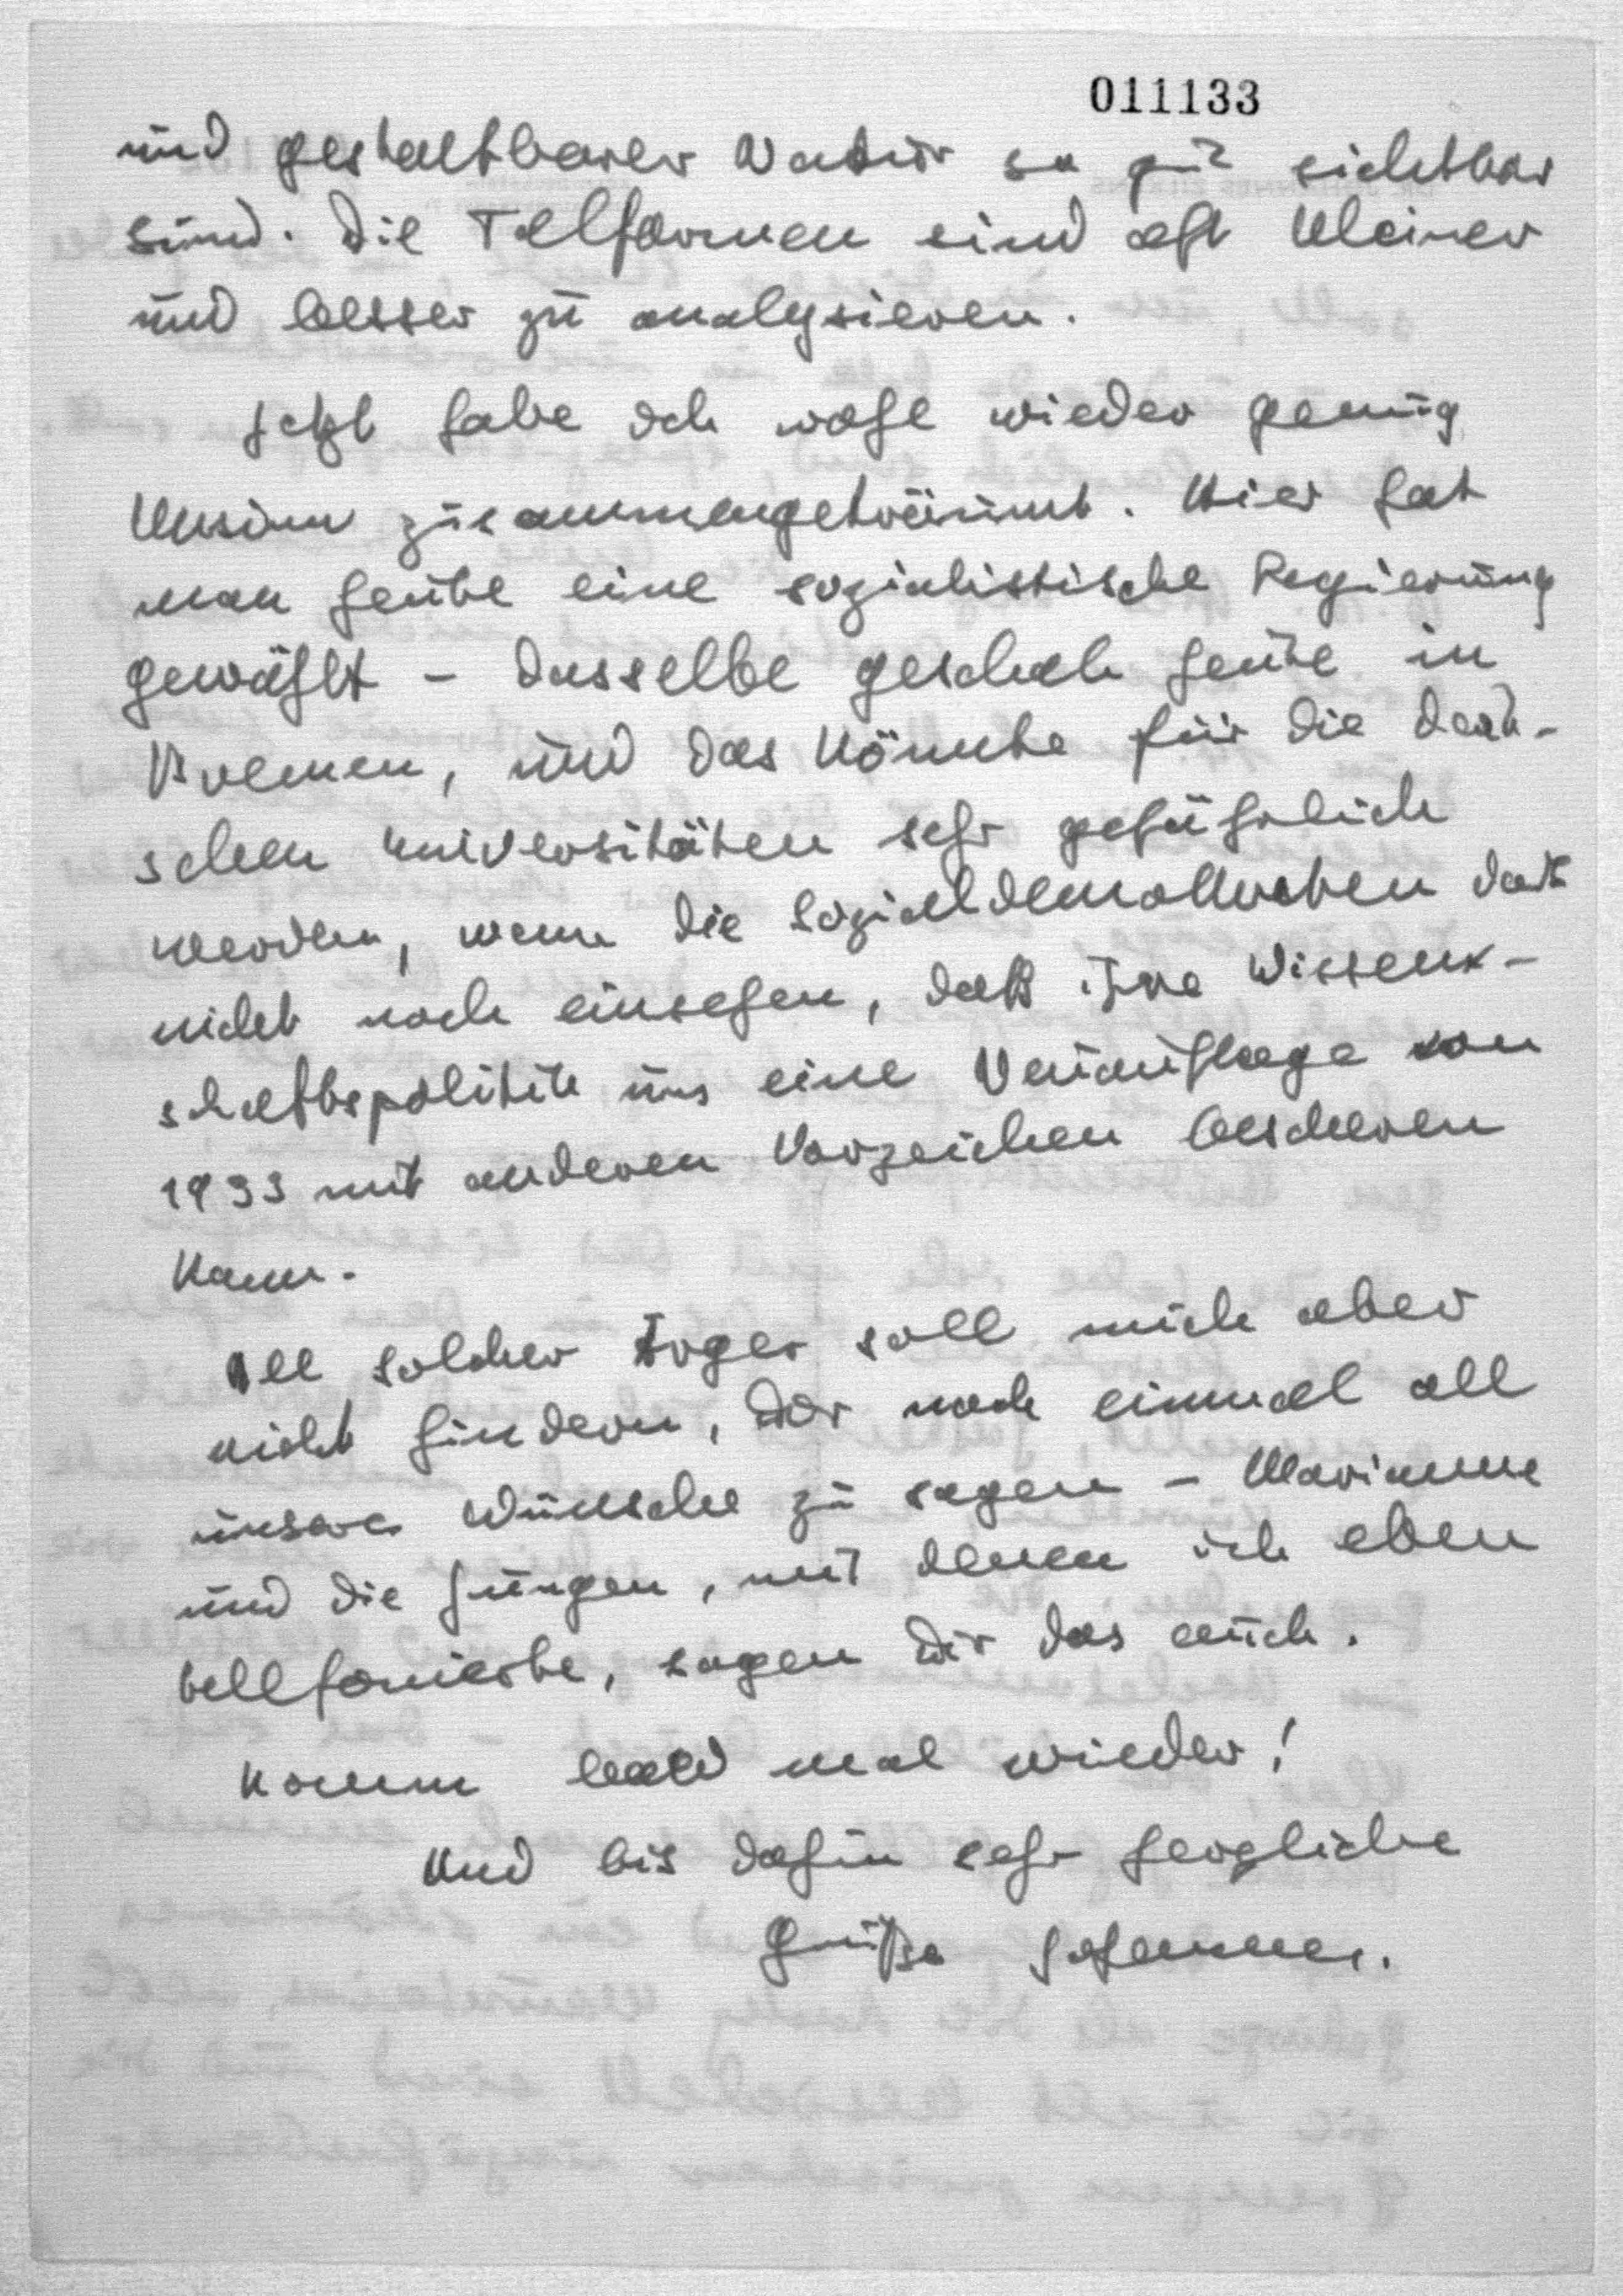 011133
und gestaltbarer Natur so gut sichtbar
sind. Die Talformen sind oft kleiner
und besser zu analysieren.
Jetzt habe ich wohl wieder genug
Unsinn zusammengeträumt. Hier hat
man heute eine sozialistische Regierung
gewählt – dasselbe geschah heute in
Bremen, und das könnte für die deut-
schen Universitäten sehr gefährlich
werden, wenn die Sozialdemokraten dort
nicht noch einsehen, daß ihre Wissen-
schaftspolitik uns eine Neuauflage von
1933 mit anderen Vorzeichen bescheren
kann.
All solcher Ärger soll mich aber
nicht hindern, Dir noch einmal all
unsere Wünsche zu sagen – Marianne
und die Jungen, mit denen ich eben
tellfonierte, sagen Dir das auch.
Komm bald mal wieder!
Und bis dahin sehr herzliche
Grüße Johannes.